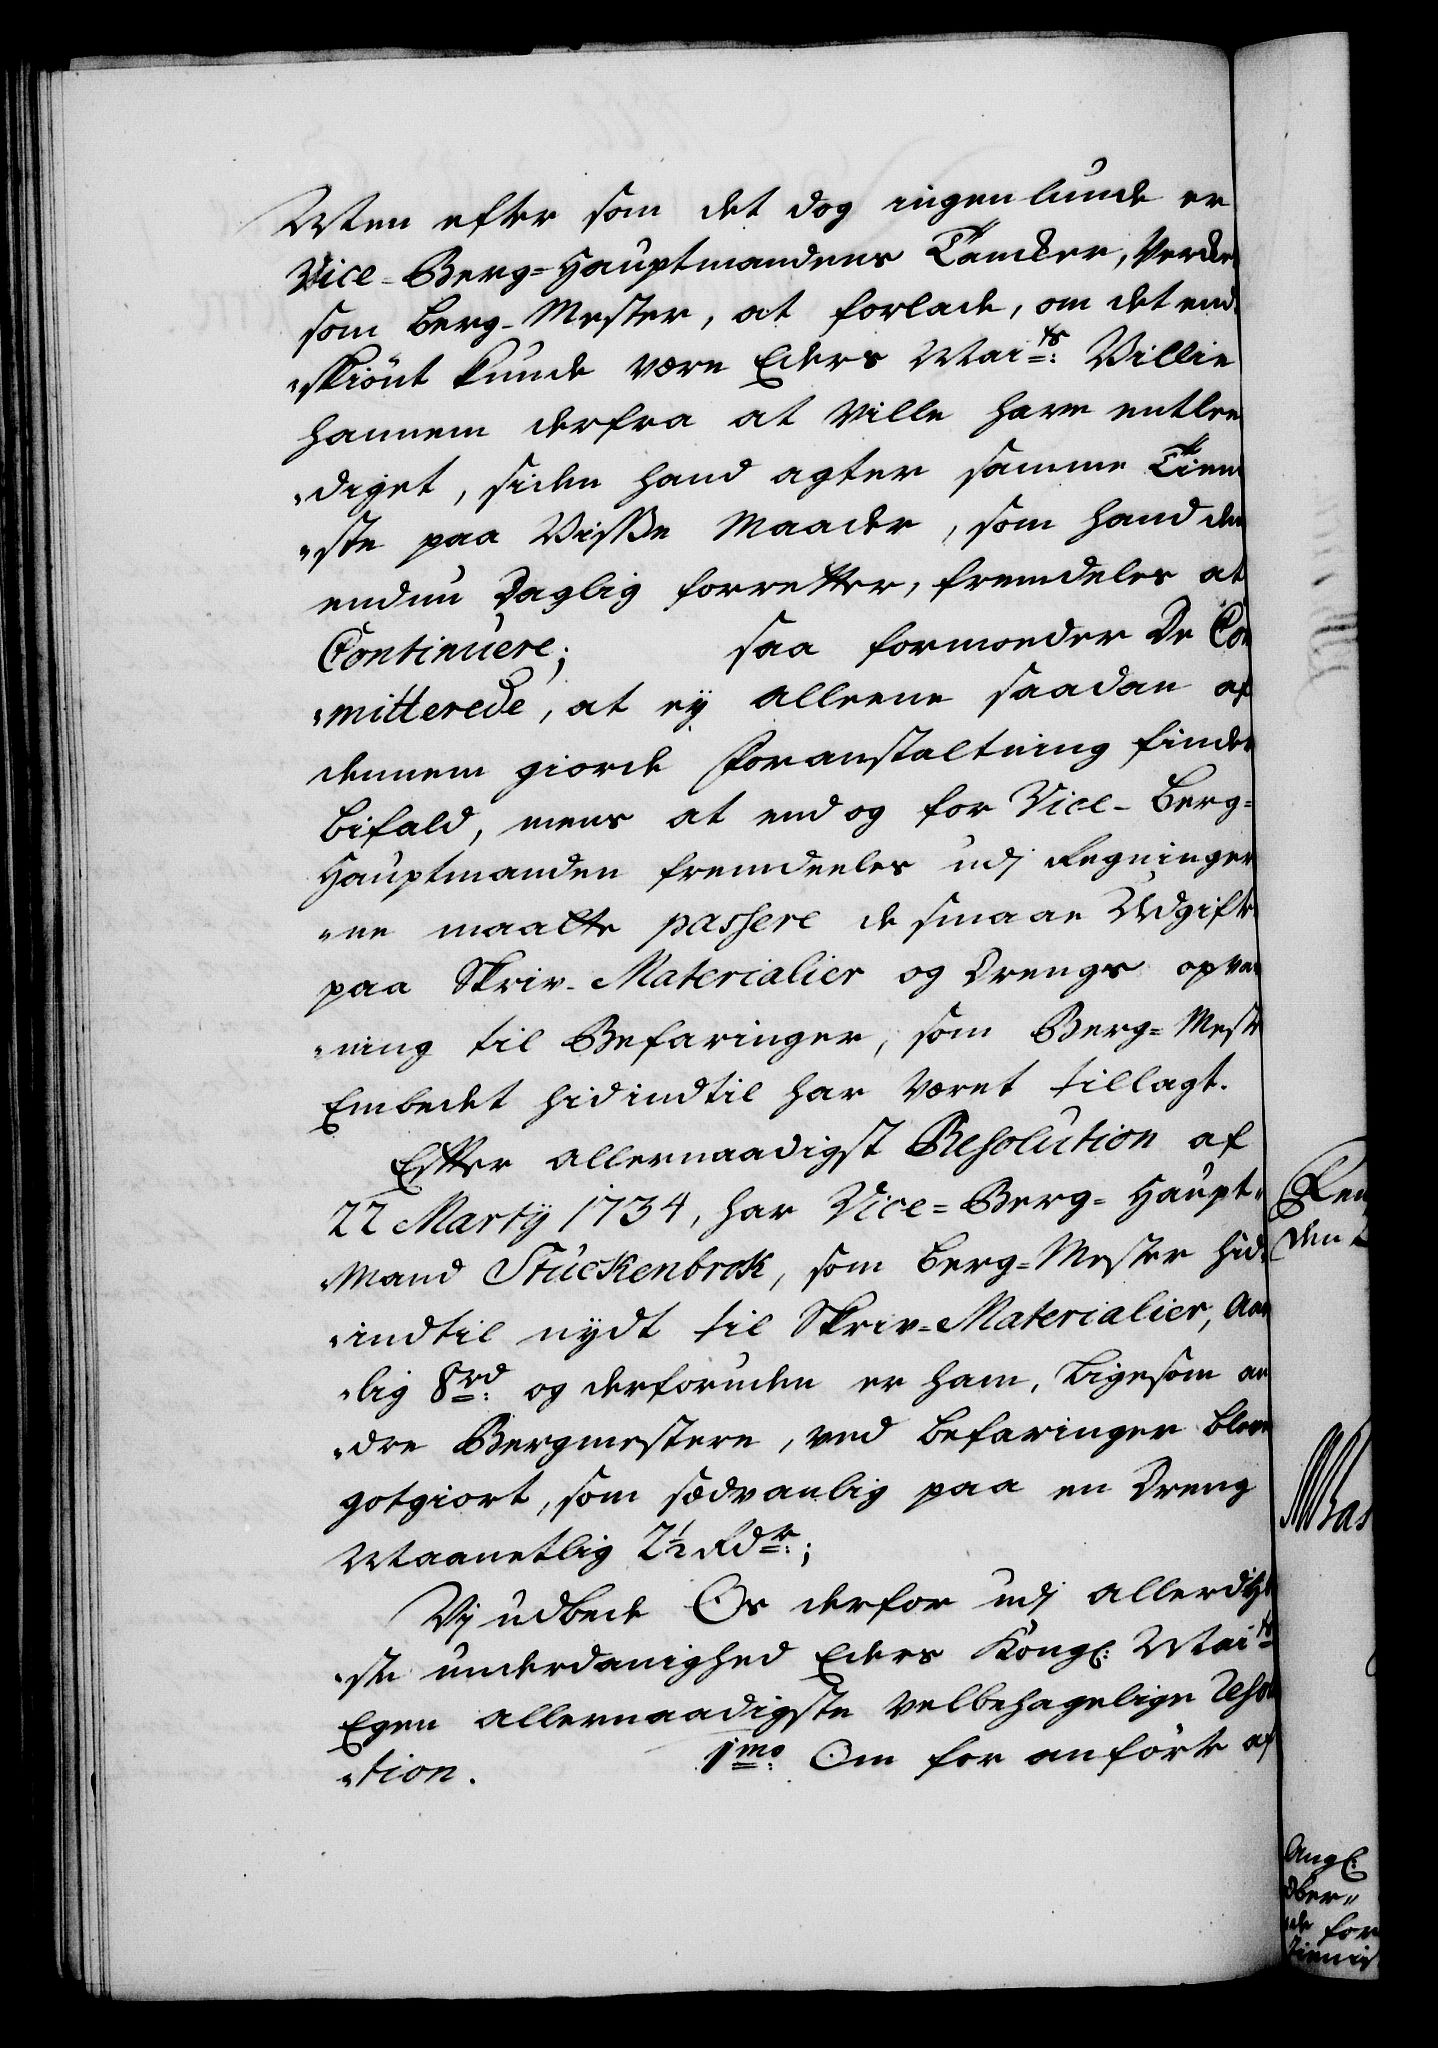 Men efter som det dog ingenlunde er
Vice-Berg-Hauptmandens Tancker, Verket
som Berg-Mester, at forlade, om det end
„skiönt kunde være Eders Maits: Villie
hannem derfra at Ville have entlee
„diget, siden hand agter samme Tiene
„ste paa Visse Maader, som hand den
endnu Daglig forretter, fremdeles at
Continuere; saa formoeder De Com
„mitterede, at ey alleene saadan af
dennem giorde Foranstaltning finder
bifald, mens at end og for Vice-Berg=
Hauptmanden fremdeeles udj Regninger
„ne maatte passere de smaae Udgifter
paa Skriv-Materialier og Drengs opva
„ning til Befaringer, som Berg-Mester
Embedet hidindtil har været tillagt.
Efter allernaadigst Resolution af
22 Martij 1734, har Vice-Berg-Haupt„
„Mand Stuckenbrok, som Berg-Mester hid„
„indtil nydt til Skriv-Materialier, Aar
„lig 8 rd: og derforuden er ham, ligesom an
„dre Bergmestere, ved befaringer bleven
gotgiort, som sædvanlig paa en Dreng
Maanetlig 2½ Rdr:;
Vj udbede Os derfor udj allerdybe
„ste underdanighed Eders Kongl: Maits
Egen allernaadigste velbehagelige Resolu
„tion. 1mo: Om for anförte af